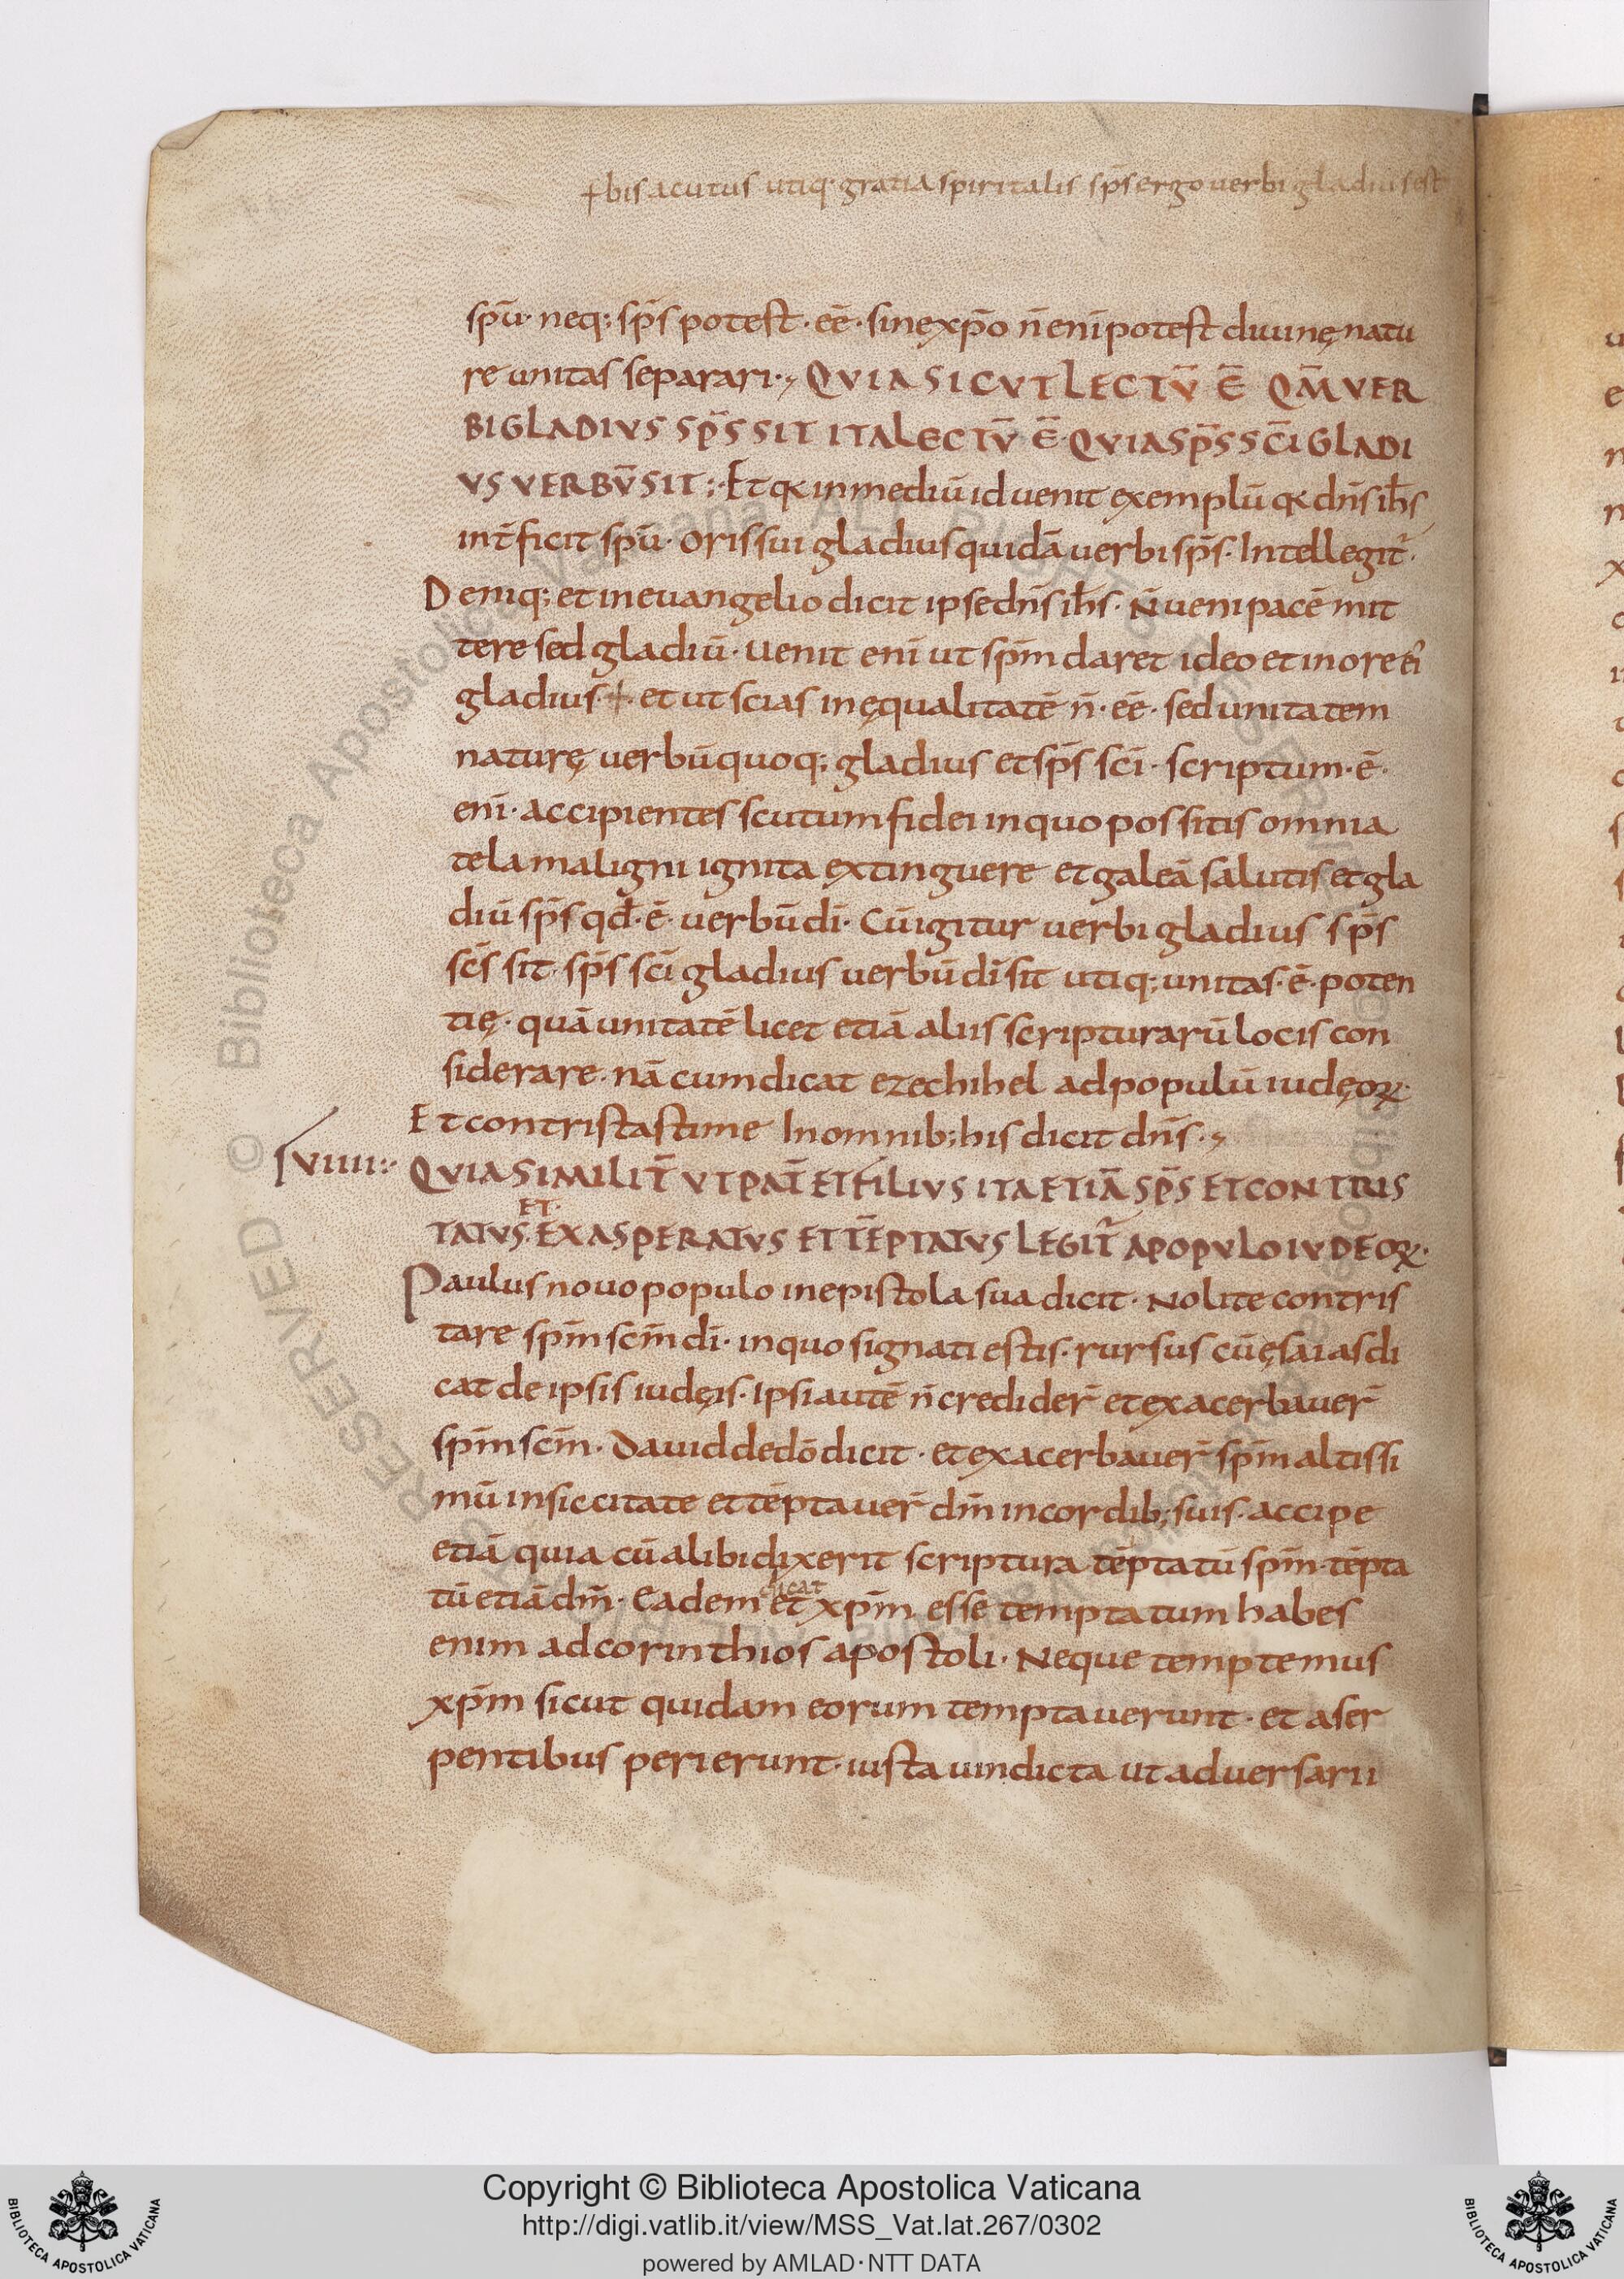 ϯbis acutus utiq· gratia spiritalis sp̄s ergo uerbi gladius est
sp̄u· neq; sp̄s potest· eē· sine xp̄o n̄ enī potest diuinę natu
re unitas separari·, QVIA SICVT LECTŪ Ē QM̄ VER
BI GLADIVS SP̄S SIT ITA LECTŪ Ē· QVIA SP̄S SC̄I GLADI
VS VERBŪ SIT;· Et qa in mediū id uenit exemplū qa dn̄s ih̄s
int̄ficit sp̄u· oris sui gladius quidā uerbi sp̄s· Intellegit̄·
Deniq; et in euangelio dicit ipse dn̄s ih̄s· N̄ ueni pacē mit
tere sed gladiū· uenit enī ut sp̄m daret ideo et in ore ei'
gladius·ϯ· et ut scias inęqualitatē n̄· eē· sed unitatem
naturę uerbū quoq; gladius et sp̄s sc̄i· scriptum· ē·
enī· accipientes scutum fidei in quo possitis omnia
tela maligni ignita extinguere et galeā salutis et gla
diū sp̄s qd̄· ē· uerbū dī· Cū igitur uerbi gladius sp̄s
sc̄s sit· sp̄s sc̄i gladius uerbū dī sit utiq; unitas· ē· poten
tię· quā unitatē licet etiā aliis scripturarū locis con
siderare· nā cum dicat ezechihel ad populū iudęoꝝ·
Et contristasti me In omnib; his dicit dn̄s·,
VIIII:· QVIA SIMILIT̄ VT PAT̄ ET FILIVS ITA ETIĀ SP̄S ET CONTRIS
TATVS· ET· EXASPERATVS ET TĒPTATVS LEGIT̄ A POPVLO IVDEOꝝ·
Paulus nouo populo in epistola sua dicit· Nolite contris
tare sp̄m sc̄m dī· in quo signati estis· rursus cū ęsaias di
cat de ipsis iudęis· Ipsi autē n̄ credider̄ et exacerbauer̄
sp̄m sc̄m· Dauid de dō dicit· et exacerbauer̄ sp̄m altissi
mū in siccitate et tēptauer̄ dm̄ in cordib; suis· accipe
etiā quia cū alibi dixerit scriptura tēptatū sp̄m· tēpta
tū etiā dm̄· Eadem dicat et xp̄m esse temptatum habes
enim ad corinthios apostoli· Neque temptemus
xp̄m sicut quidam eorum temptauerunt· et a ser
pentibus perierunt· iusta uindicta ut aduersarii
Copyright © Biblioteca Apostolica Vaticana
http://digi.vatlib.it/view/MSS_Vat.lat.267/0302
powered by AMLAD · NTT DATA
BIBLIOTECA APOSTOLICA VATICANA
BIBLIOTECA APOSTOLICA VATICANA